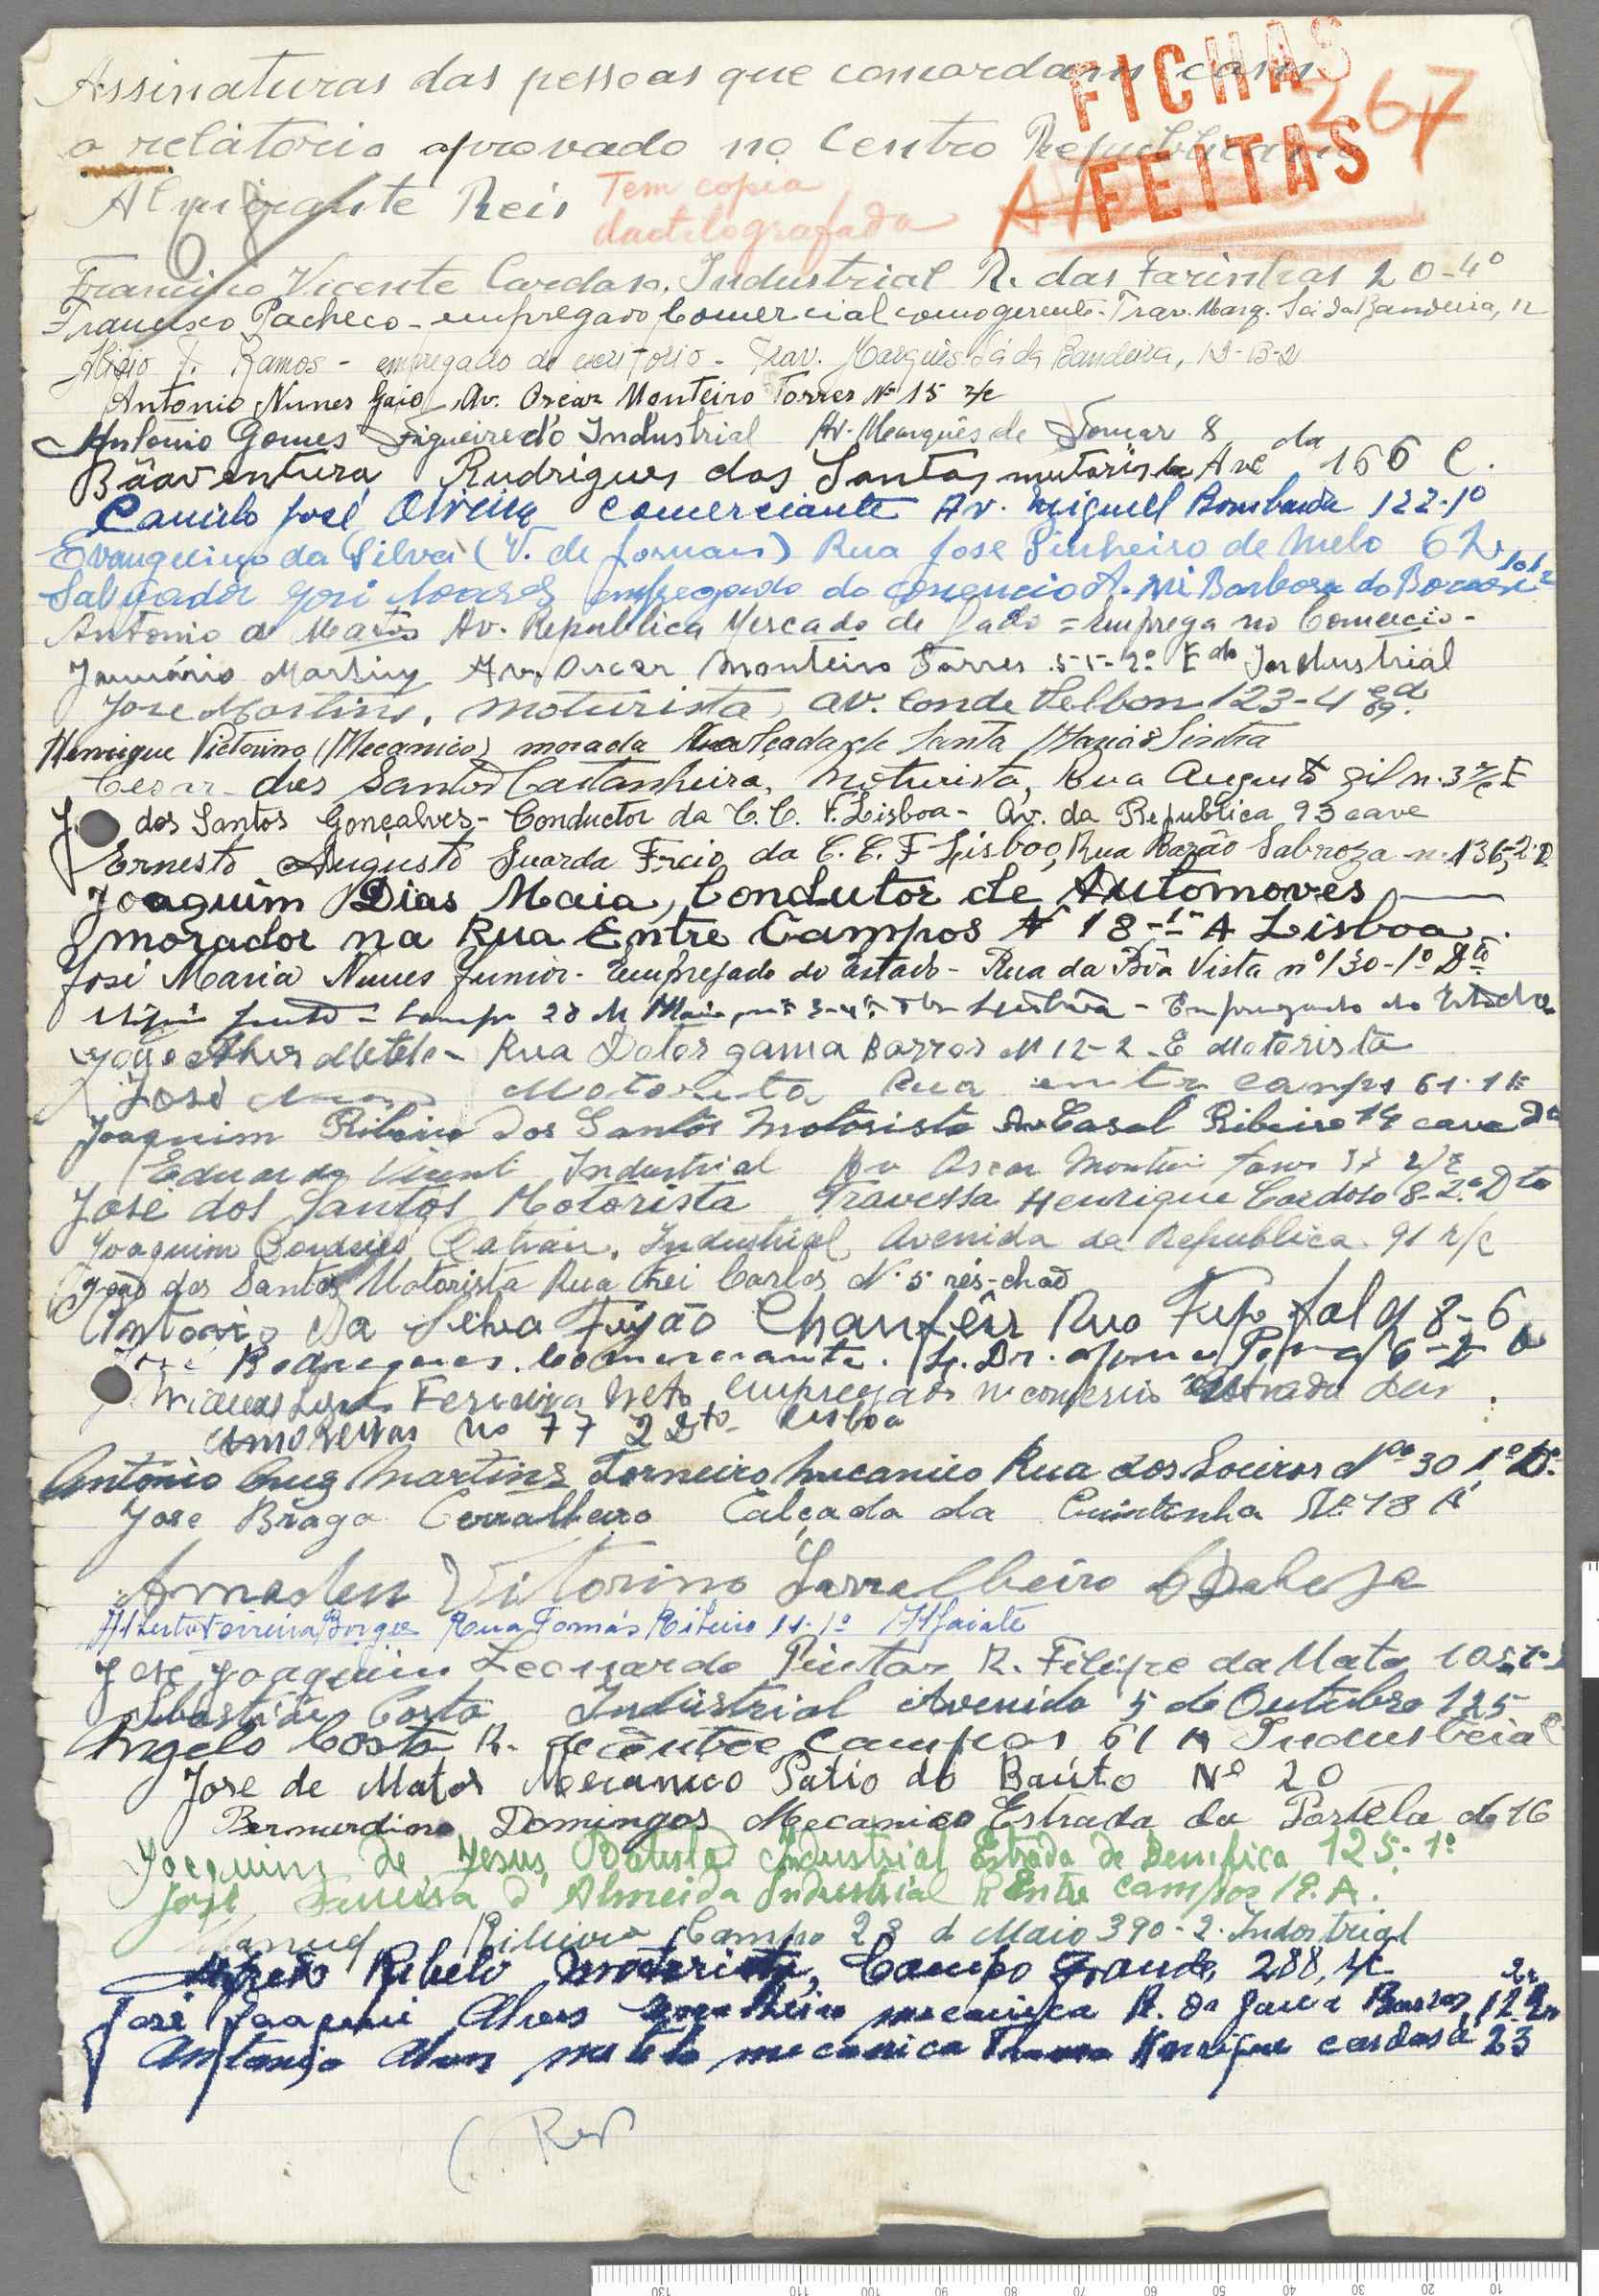 Assinaturas das pessoas que concordam com
o relatorio aprovado no Centro Republicano
Almirante Reis
Tem copia
dactilografada
FICHAS
FEITAS
267
Francisco Vicente Cardoso, Industrial R. das Farinhas 20-4º
Francisco Pacheco - empregado Comercial como gerente - Trav. Marq. Sá da Bandeira, 12
Ramos - empregado de escritorio - Trav. Marquês Sá da Bandeira, 12-B-2
Antonio Nunes Gaio Av. Oscar Monteiro Torres Nº 15 r/c
Antonio Gomes Figueiredo Industrial Av. Marquês de Tomar 8
Bõaventura Rudrigues dos Santos motorista Ave da 166 C.
Camilo José Oliveira Comerciante Av. Miguel Bombarda 122-1º
Evangelino da Silva (V. de Jornais) Rua Jose Pinheiro de Melo 62
Salvador José empregado do comercio Barbosa do Bocage
Antonio de Matos Av. Republica Mercado de Gado = Emprega no Comercio -
Januário Martins Av. Oscar Monteiro Torres 55-2º Edo Industrial
Jose Martins, moturista, av. Conde Valbon 123-4 esqd.
Henrique Victorino (Mecanico) morada Calçada de Santa Maria Sintra
Cesar dos Santos Castanheira, Moturista, Rua Augusto Gil n. 3 r/c E
J dos Santos Gonçalves - Conductor da C. C. F. Lisboa - Av. da Republica 93 cave
Ernesto Augusto Guarda Freio da C. C. F Lisboa, Rua Barão Sabroza n. 136-2º D.
Joaquim Dias Maia, Condutor de Automoves
morador na Rua Entre Campos Nº 18-1º A Lisboa.
José Maria Nunes Junior - Empregado do Estado - Rua da Bôa Vista nº 130-1º Dtº
Campo 28 de Maio, Lisboa - Empregado do Estado
João Alves Matela - Rua Dotor gama Barros Nº 12-2-E Motorista
José Motorista Rua entre campos 61-1º E
Joaquim Ribeiro dos Santos Motorista Av Casal Ribeiro 14 cave Dª
Eduardo Vicente Industrial Av Oscar Monteiro Torres 37 r/c
José dos Santos Motorista Travessa Henrique Cardoso 8-2º Dto
Joaquim Cordeiro Catrau, Industrial Avenida da Republica 91 r/c
João dos Santos Motorista Rua Frei Carlos Nº 5 rés-chaõ
Antonio da Silva Feijão Chaufêir Rua 8-6
José Rodrigues. Comerciante. L. Dr. 6-2
Ferreira Neto empregado no comercio estrada das
Amoreiras no 77 2 Dto Lisboa
António Cruz Martins Torneiro mecanico Rua dos Soeiros Nº 30 1º D.
Jose Braga Cerralheiro Calçada da Quintinha Nº 18 A
Amadeu Vitorino Serralheiro
Alberto Ferreira Borges Rua Tomás Ribeiro 11-1º Alfaiate
José Joaquim Leonardo Pintor R. Filipe da Mata 105
Sebastião Costa Industrial Avenida 5 de Outubro 125
Angelo Costa R. de Êntre Campos 61 A Industrial
Jose de Matos Mecanico Patio do Baúto Nº 20
Bernardino Domingos Mecanico Estrada da Portela Nº 16
Joaquim de Jesus Batista Industrial Estrada de Bemfica 125-1º
José Ferreira d'Almeida Industrial R Entre campos 18. A.
Manuel Ribeiro Campo 28 d Maio 390-2. Industrial
Alfredo Rebelo motorista, Campo Grande, 288, r/c
José Joaquim Alves mecanica R. Dr Gama Barros, 12 2º
Antonio Alves matela mecanica Henrique cardoso 23